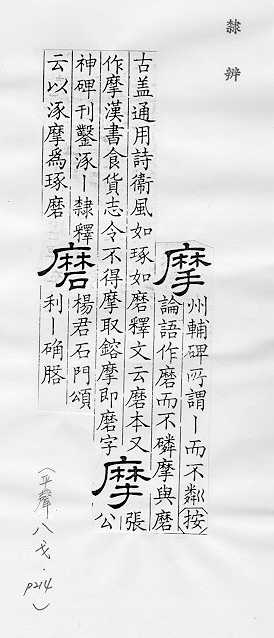 隸辨
摩
州輔碑所謂丨而不粼按
論語作磨而不磷摩與磨
古盖通用詩衞風如琢如磨釋文云磨本又
作摩漢書食貨志令不得摩取鎔摩即磨字
摩
張
公
神碑刊鑿涿丨隸釋
云以涿摩爲琢磨
磨
楊君石門頌
利丨确
(平聲八戈.p214)